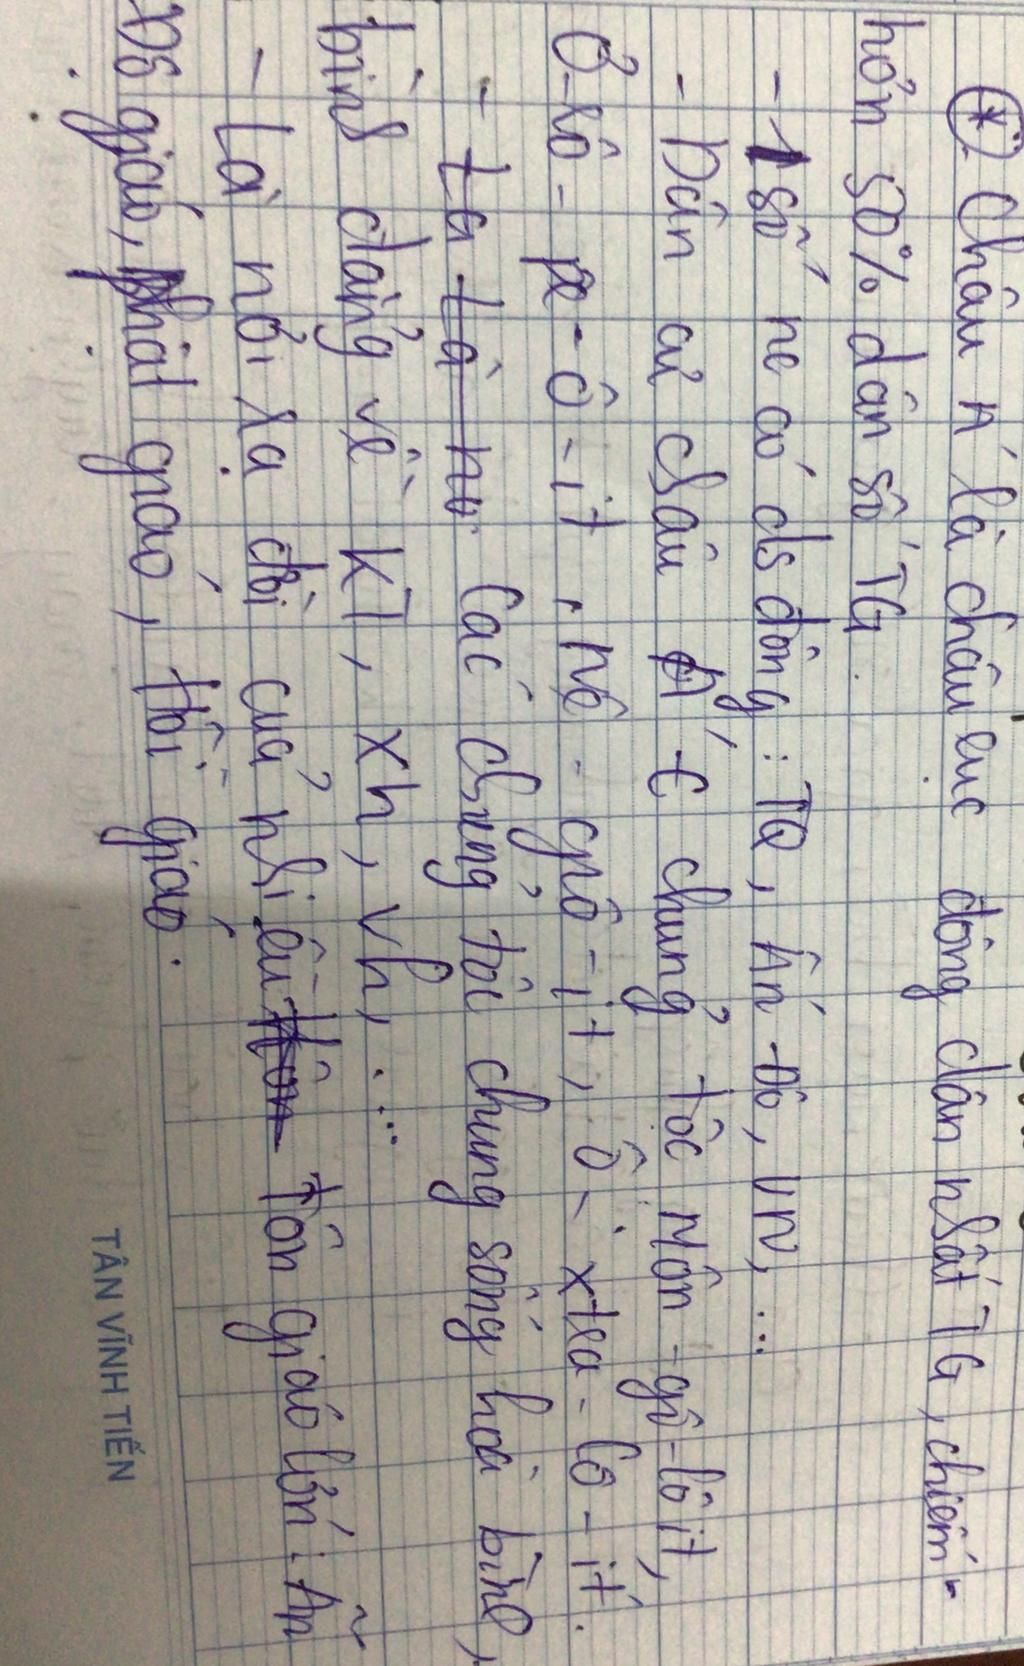 (*) Châu Á là châu lục đông dân nhất TG, chiếm
hơn 50% dân số TG.
- 1 số nc có ds đông : TQ, Ấn Độ, VN, ...
- Dân cư châu Á t chủng tộc Môn-gô-lô it,
Ơ-rô-pe-ô-it, Nê-grô-it, Ô-xtra-lô-it.
- Các chủng tộc chung sống hoà bình,
bình đẳng về KT, xh, vh, ...
- Là nơi ra đời của nhiều tôn giáo lớn : Ấn
Độ giáo, phật giáo, hồi giáo.
TÂN VĨNH TIẾN